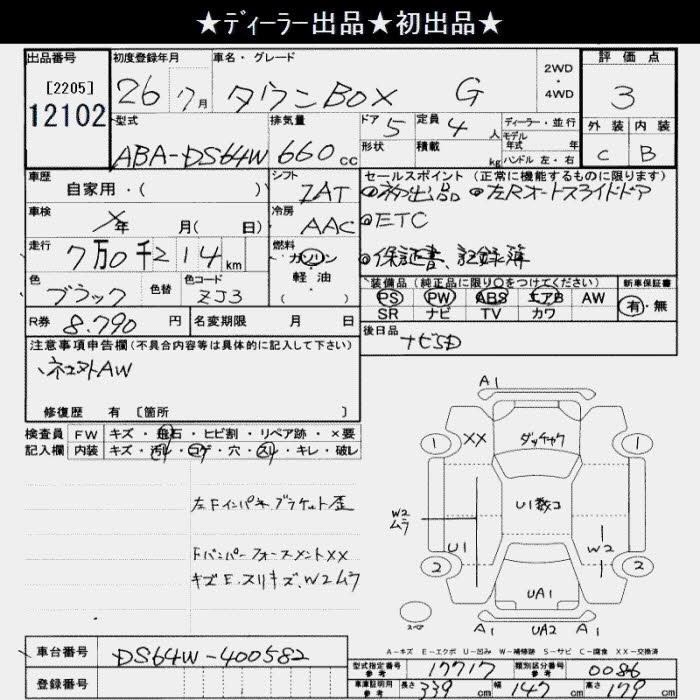 ★ディーラー出品★初出品★
出品番号 初度登録年月 車名・グレード 2WD・4WD 評価点
[2205] 12102 26 7月 タウンBOX G 3
型式 排気量 ドア 5 定員 4人 ディーラー・並行 外装 内装
ABA-DS64W 660cc 形状 積載 kg モデル年式 年 C B
ハンドル 左・右
車歴 自家用・( ) シフト セールスポイント (正常に機能するものに限ります)
車検 年 月( 日) 冷房 AAC 初出品 左Rオートスライドドア
ETC
走行 7万0千214km 燃料 ガソリン 保証書、記録簿
軽・油
( )
色 ブラック 色替 色コード ZJ3
装備品 (純正品に限り○をつけてください) 新車保証書
PS PW ABS エアB AW 有・無
SR ナビ TV カワ
R券 8,790円 名変期限 月 日
後日品 ナビSD
注意事項申告欄(不具合内容等は具体的に記入して下さい)
AW
修復歴 有 [箇所 ]
検査員 FW キズ・飛石・ヒビ割・リペア跡・×要
記入欄 内装 キズ・汚レ・コゲ・穴・スレ・キレ・破レ
左Fインパネブラケット歪
FバンパーフォースメントXX
キズE.スリキズ、W2ムラ
A1
1 XX ダッチャク 1
W2
ムラ
U1数コ
U1 W2
2 2
UA1
スペア A1 UA2 A1
A-キズ E-エクボ U-凹み W-補修跡 S-サビ C-腐食 XX-交換済
車台番号 DS64W-400582
型式指定番号 参考 17717 類別区分番号 参考 0086
登録番号
車庫証明用 参考 長さ 339cm 幅 147cm 高さ 179cm